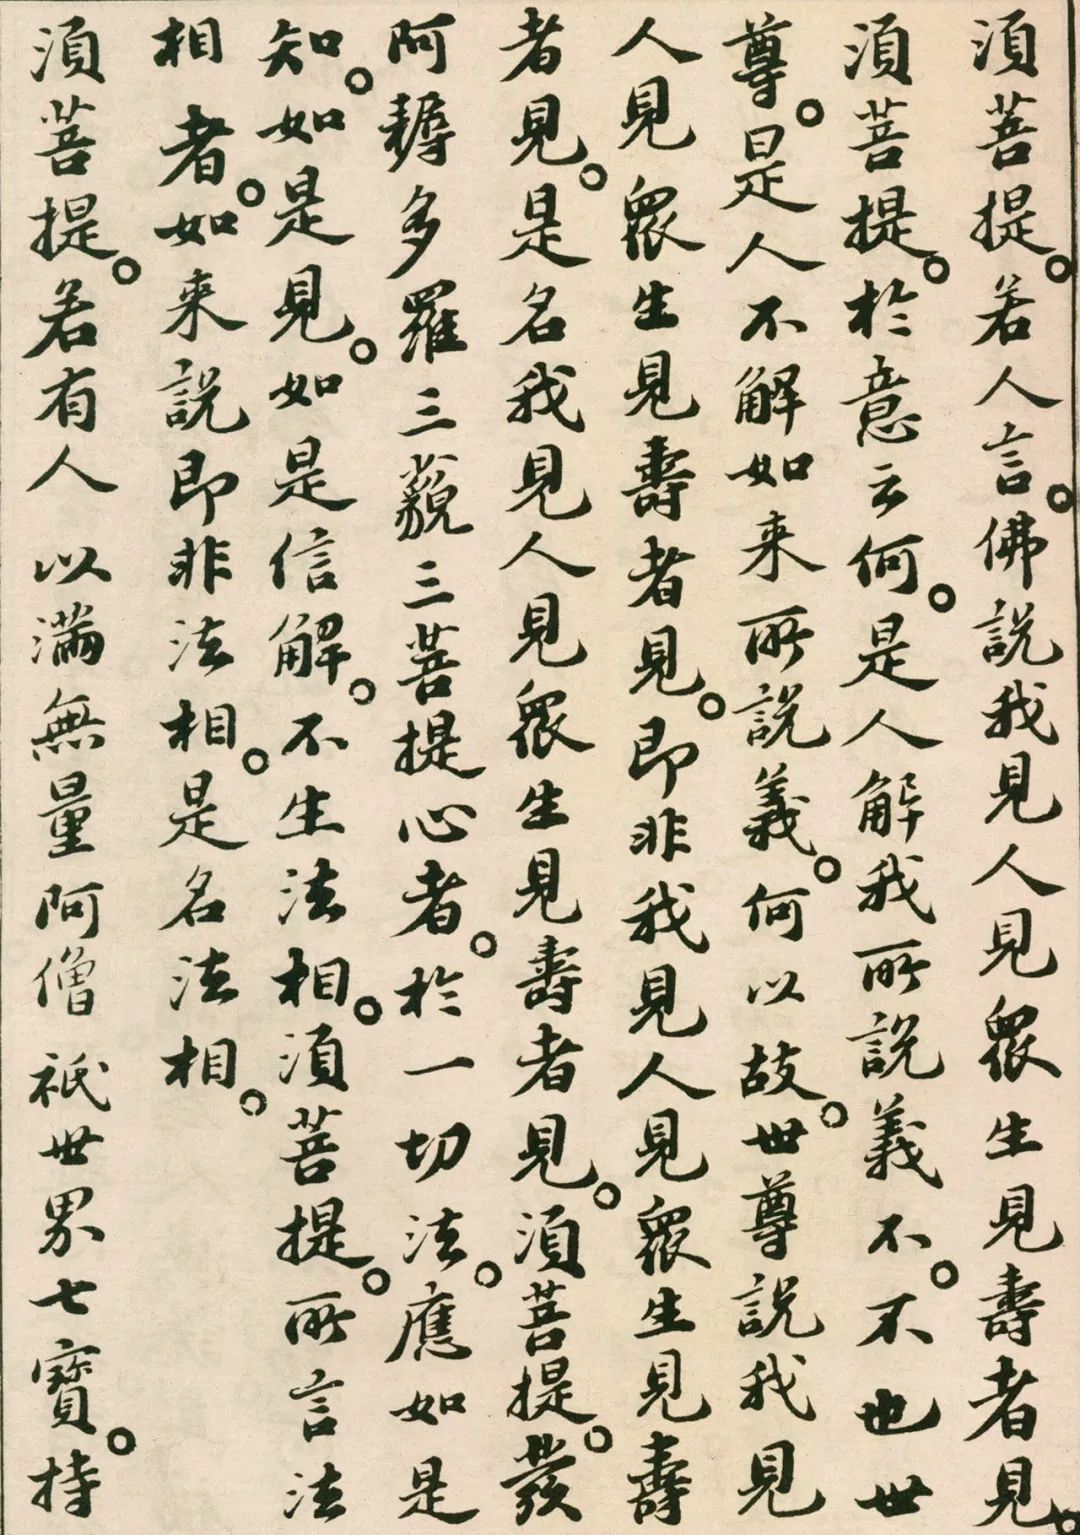 須菩提。若人言。佛說我見人見眾生見壽者見。
須菩提。於意云何。是人解我所說義不。不也世
尊。是人不解如來所說義。何以故。世尊說我見
人見眾生見壽者見。即非我見人見眾生見壽
者見。是名我見人見眾生見壽者見。須菩提。發
阿耨多羅三藐三菩提心者。於一切法。應如是
知。如是見。如是信解。不生法相。須菩提。所言法
相者。如來說即非法相。是名法相。
須菩提。若有人以滿無量阿僧祇世界七寶。持